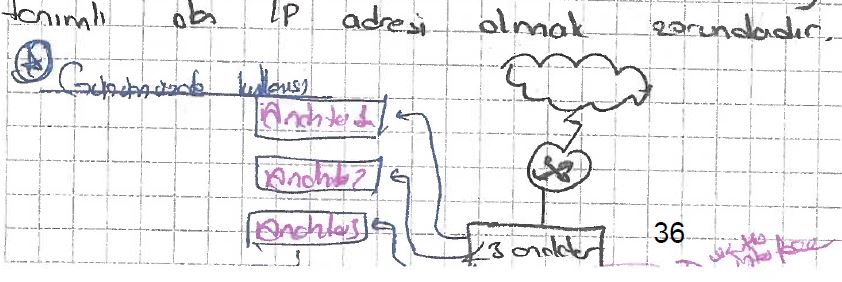 tanımlı olan IP adresi olmak zorundadır.
Günümüzde kullanısı
Anahtar 1
Anahtar 2
Anahtar 3
L3 anahtar
36